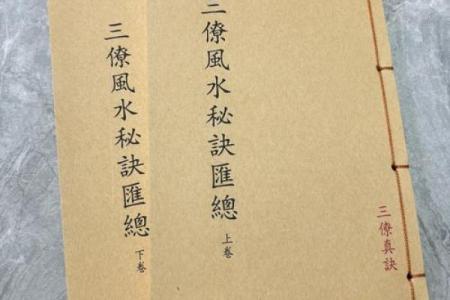 三僚風水秘訣匯總
上卷
三僚真訣
三僚風水秘訣匯總
下卷